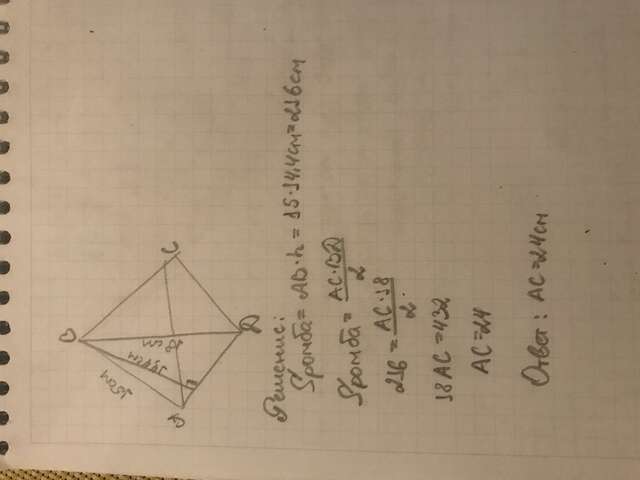 B
C
A
D
15 см
14,4 см
18 см
Решение:
Sромба = AD·h = 15·14,4см=216см
Sромба = AC·BD/2
216 = AC·18/2
18AC=432
AC=24
Ответ: AC=24см